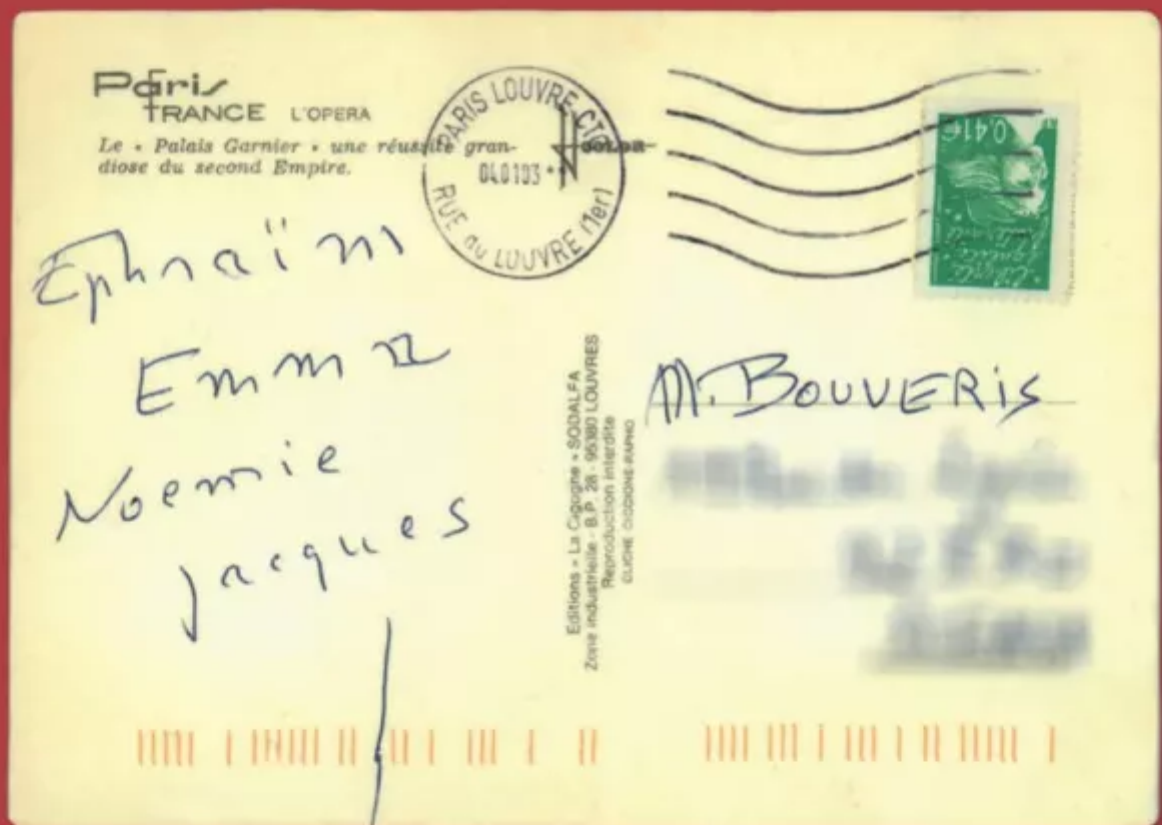 Paris
FRANCE L'OPERA
Le « Palais Garnier » une réussite gran-
diose du second Empire.
PARIS LOUVRE CTC
040103
RUE du LOUVRE (1er)
0,41€
Ephraïm
Emma
Noemie
Jacques
M. BOUVERIS
Editions « La Cigogne » SODALFA
Zone industrielle - B.P. 28 - 95380 LOUVRES
Reproduction interdite
CLICHE CICCIONE-RAPHO